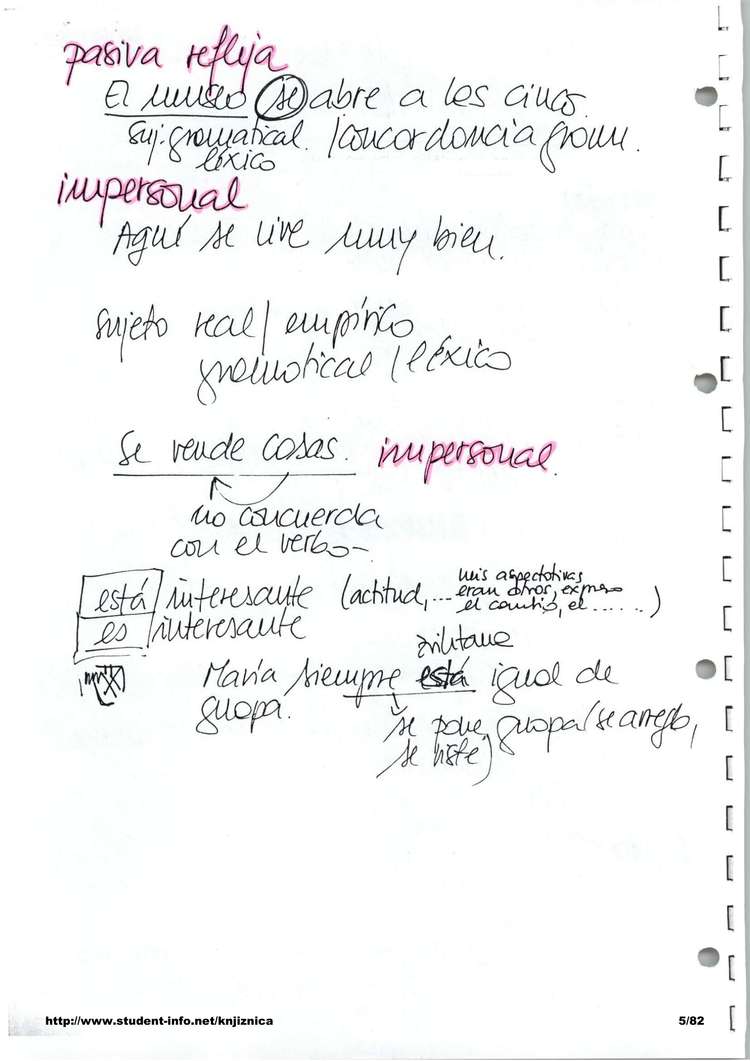 pasiva refleja
El museo se abre a las cinco.
suj. gramatical. /concordancia gram.
léxico
impersonal
Aquí se vive muy bien.
sujeto real/ empírico
gramatical / léxico
Se vende cosas. impersonal.
no concuerda
con el verbo
está / interesante (actitud, ... mis aspectativas
eran otros, expreso
el cambio, el ......)
es / interesante
María siempre está igual de
guapa.
se pone guapa (se arregla,
se viste)
http://www.student-info.net/knjiznica 5/82